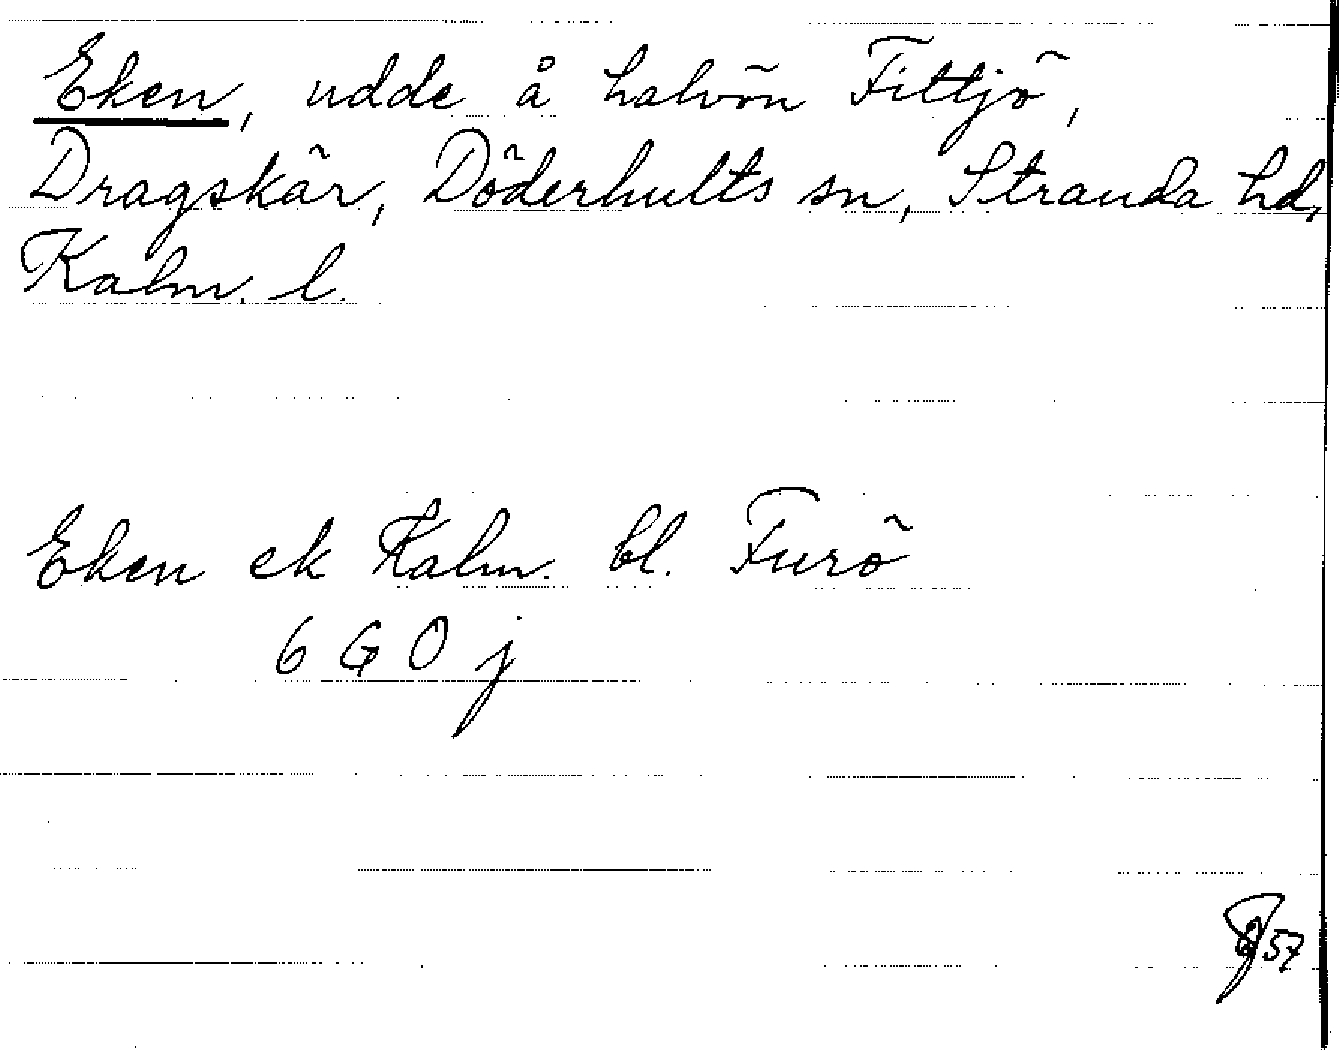 Eken, udde å halvön Fittjö,
Dragskär, Döderhults sn, Stranda hd,
Kalm. l.
Eken ek Kalm. bl. Furö
6 G O j
57